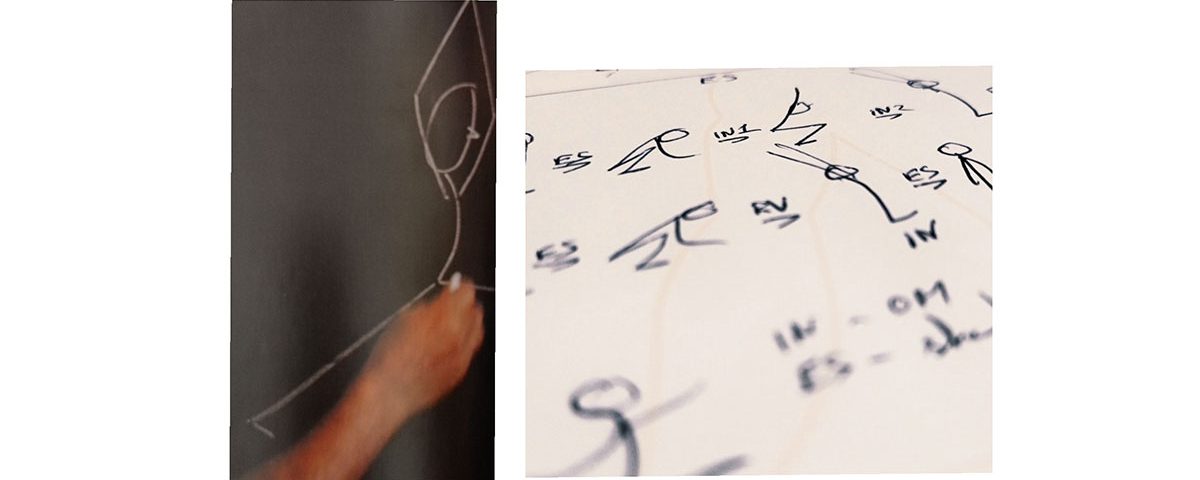 ES
ES IN1 IN2
ES
ES EV
IN
IN - OM
ES -